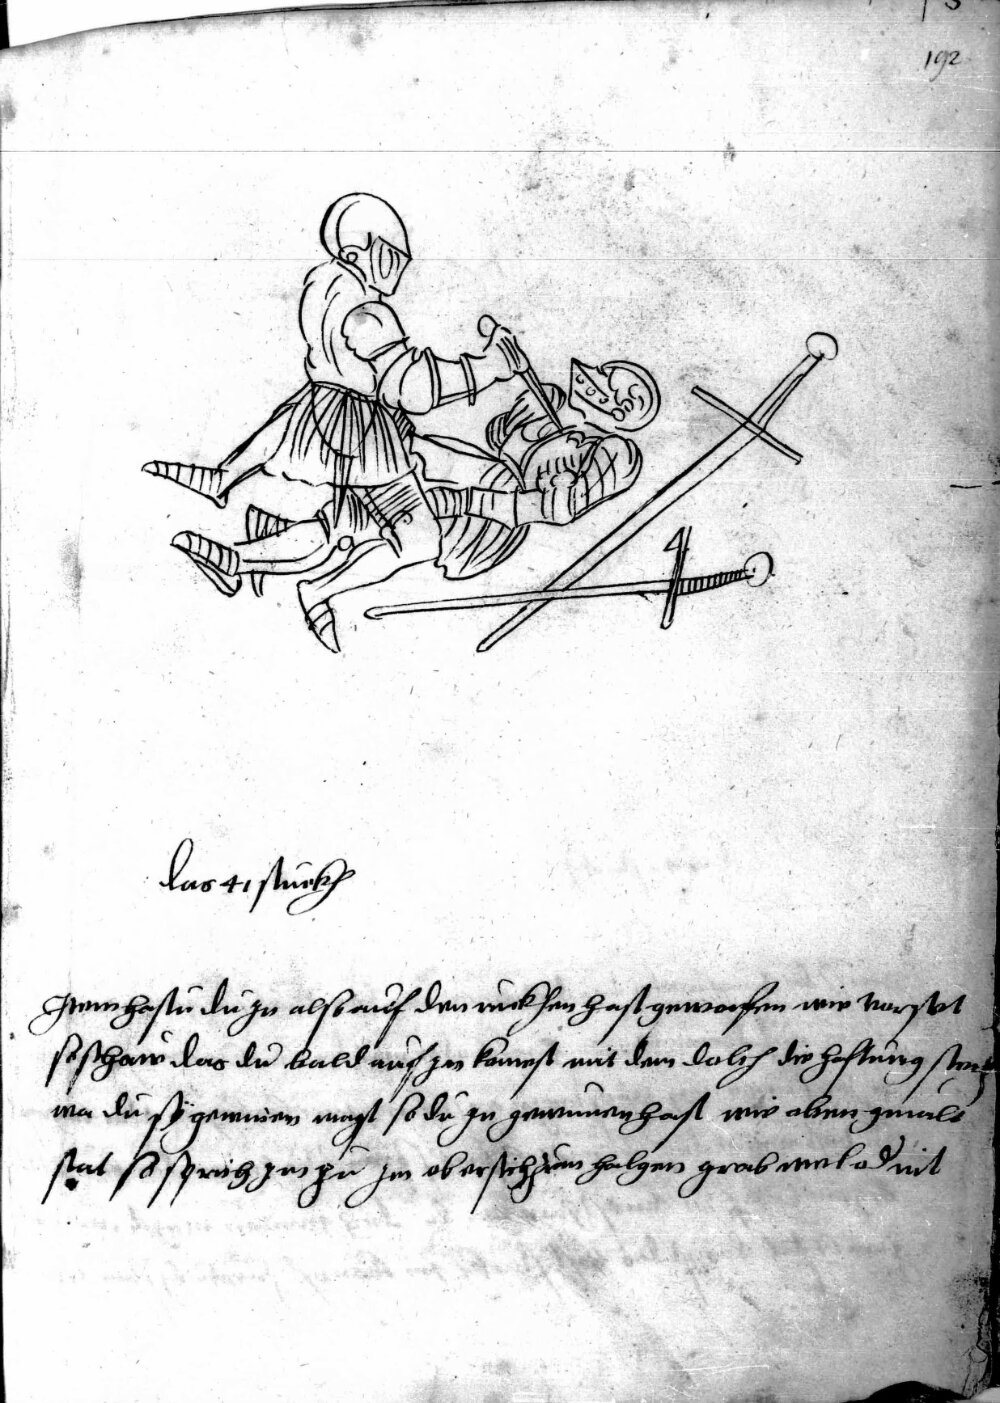 192
das 41 stuckh
Item hastu du jn also auf den ruckhen hast geworfen wie vorstet
so schaw das du bald auf jn komest mit dem dolch die hafftung
wa du sy gewinen magst so du jn gewunen hast wie oben gmalt
stat so sprich jm zu jm ob er sich wel od nit